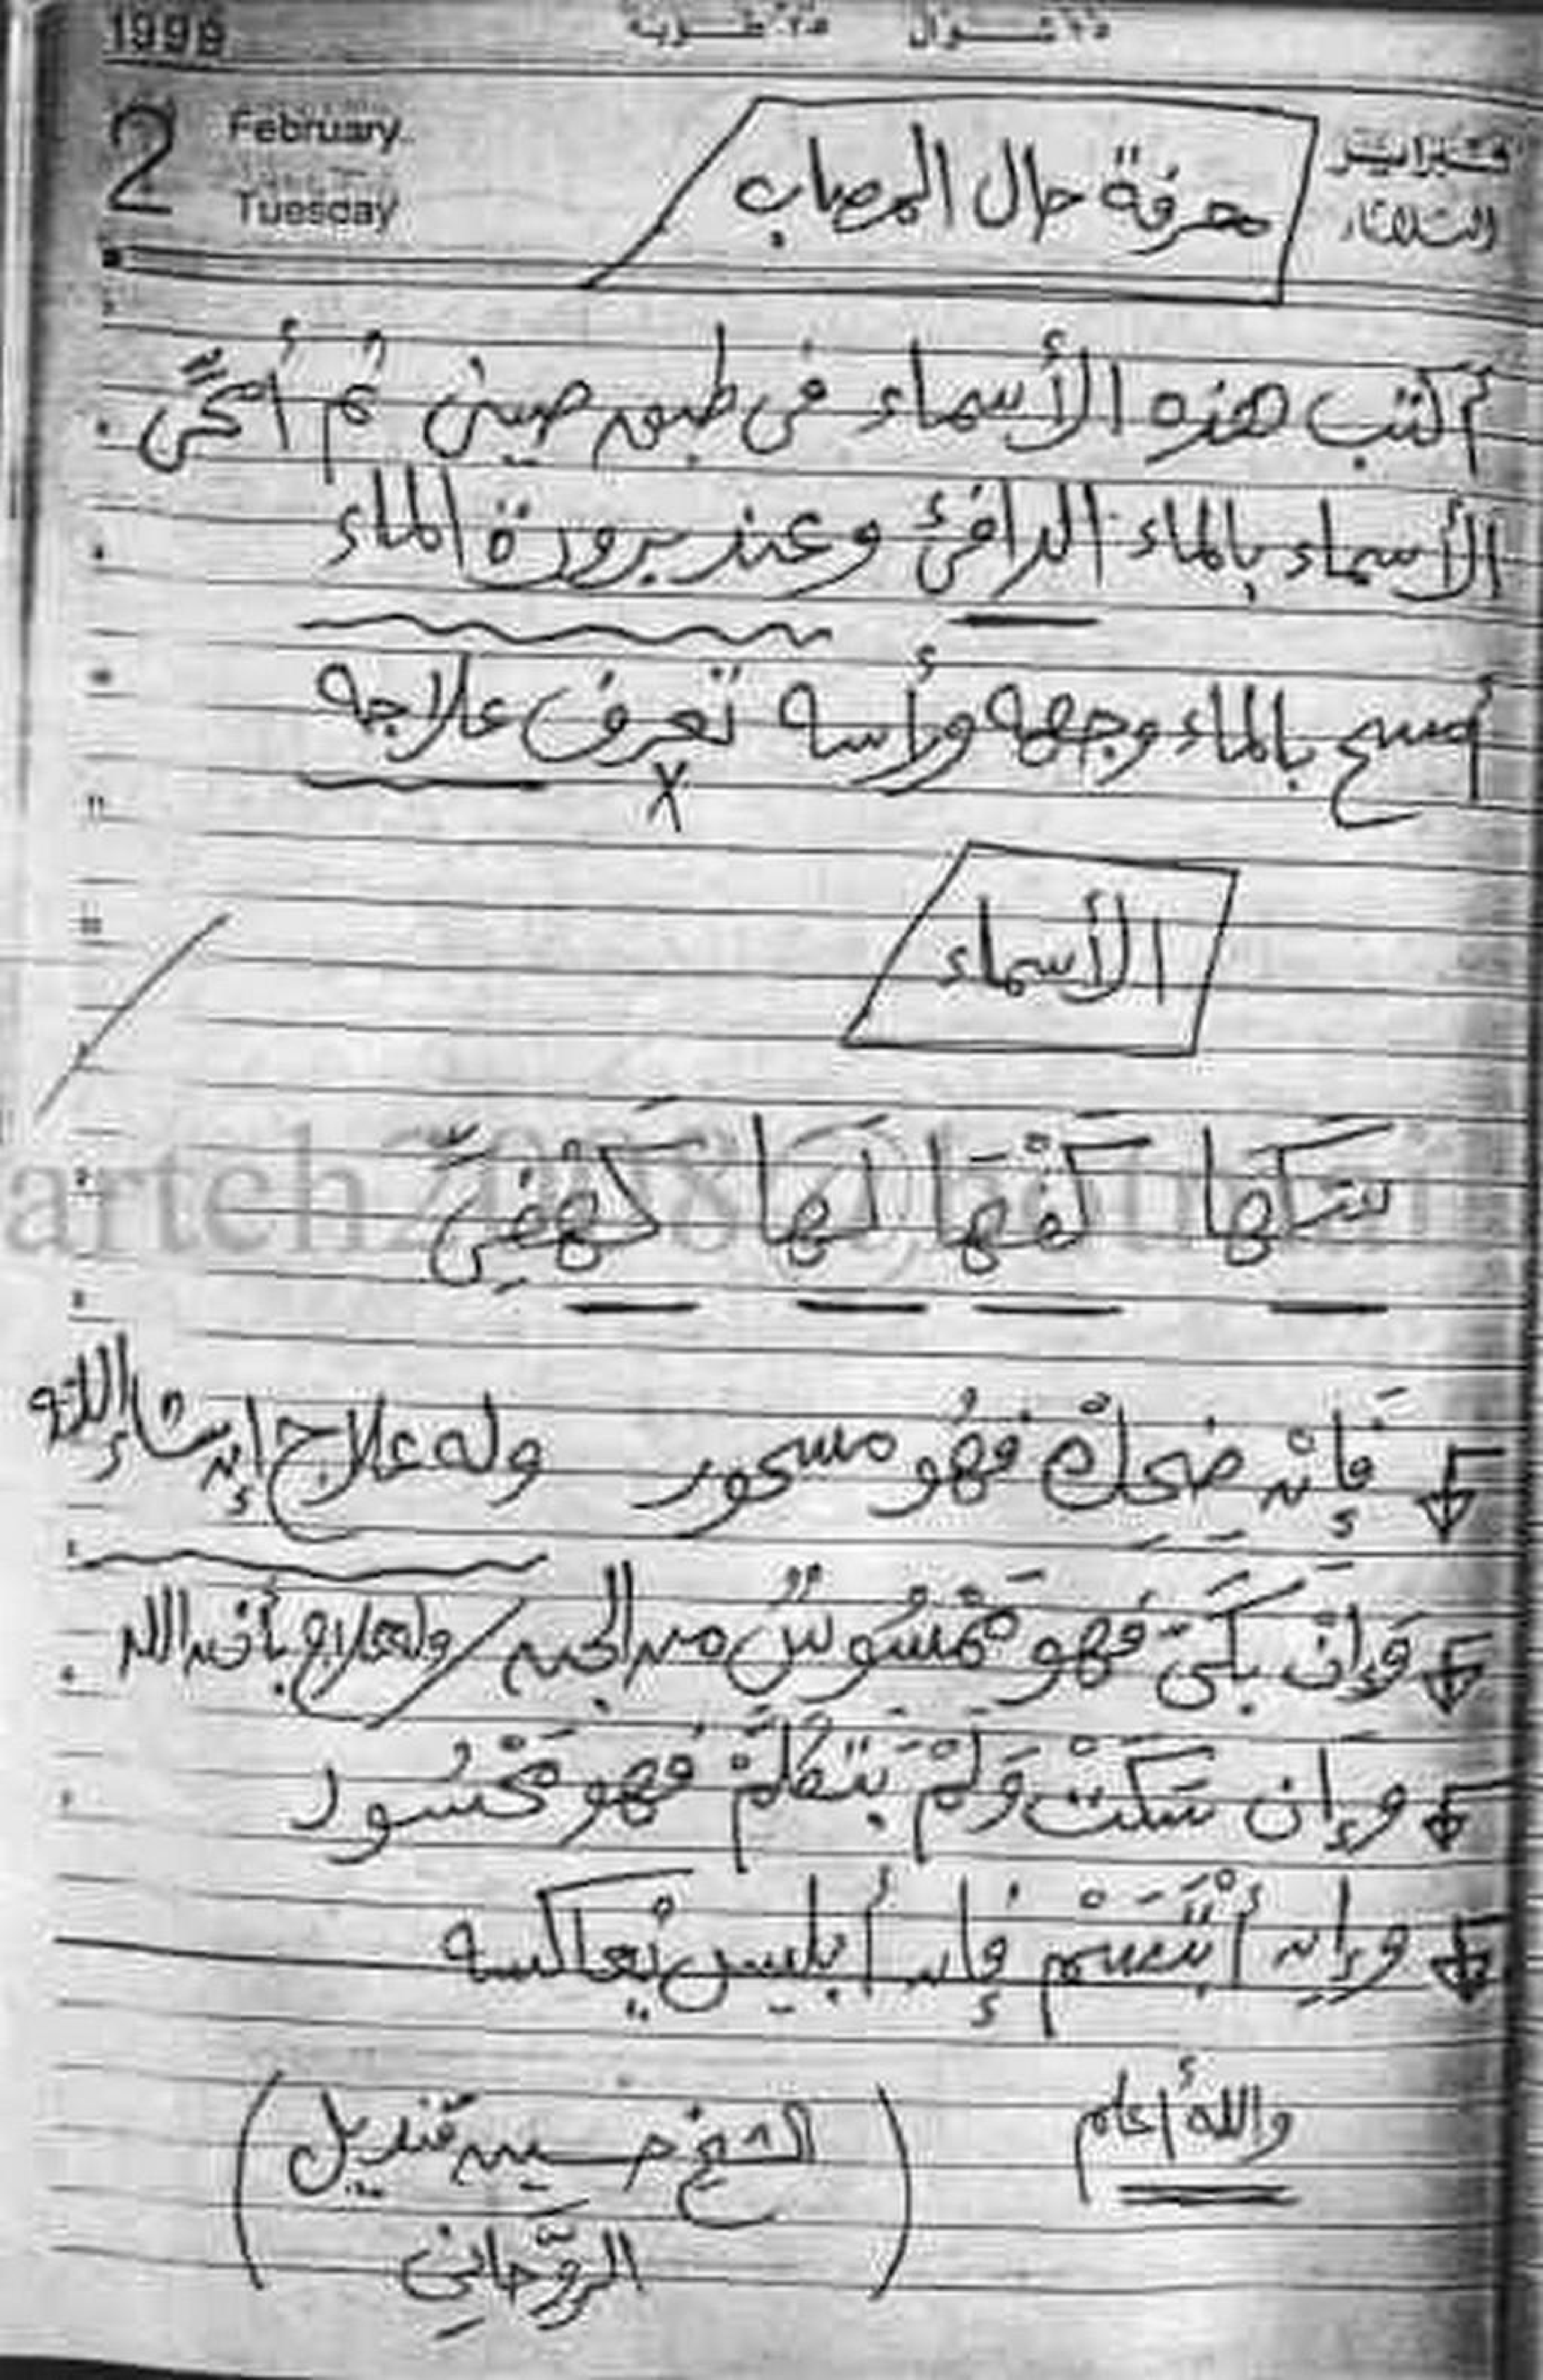 1999
٢٥ طوبة ١٥ شوال
2 February Tuesday
فبراير الثلاثاء
معرفة حال المصاب
أكتب هذه الأسماء فى طبق صينى ثم أمحى
الأسماء بالماء الدافئ وعند برودة الماء
أمسح بالماء وجهه ورأسه تعرف علاجه
الأسماء
سَكها كَفْهَا لَهَا كَهْفِىٍ
فَإِنْ ضَحِكْ فهُو مسحور وله علاج إن شاء الله
وَإِنْ بَكَىّ فَهو مَمْسُوسٌ من الجن وله علاج بأذن الله
وإن سَكَتْ وَلَمْ يَتَكَلَّمْ فهو مَحْسُود
وإن أبْتَسَمْ فإن أبليس يُعاكسه
والله أعلم
الشيخ حسين قنديل
الرَوَّحانِى